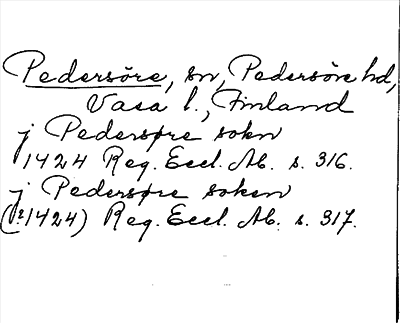 Pedersöre, sn, Pedersöre hd,
Vasa l., Finland
j Pedersøre sokn
1424 Reg. Eccl. Ab. s. 316.
j Pedersøre soken
(?1424) Reg. Eccl. Ab. s. 317.